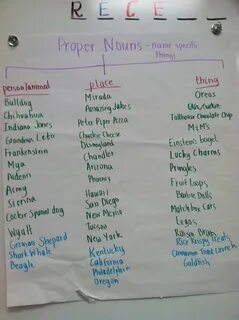 R E C E _ _
Proper Nouns - name specific
things
person/animal
Bulldog
Chihuahua
Indiana Jones
Grandma Leto
Frankenstein
Mya
Aideen
Army
Sienna
Cocker Spaniel dog
Wyatt
German Shepard
Shark Whale
Beagle
place
Mirada
Amazing Jakes
Peter Piper Pizza
Chuckie Cheese
Disneyland
Chandler
Arizona
Phoenix
Hawaii
San Diego
New Mexico
Tucson
New York
Kentucky
California
Philadelphia
Oregon
thing
Oreos
Tollhouse Chocolate Chip
M&M's
Einstein's bagel
Lucky Charms
Pringles
Fruit Loops
Barbie Dolls
Matchbox Cars
Legos
Raisin Bran
Rice Krispy Treats
Cinnamon Toast Crunch
Goldfish